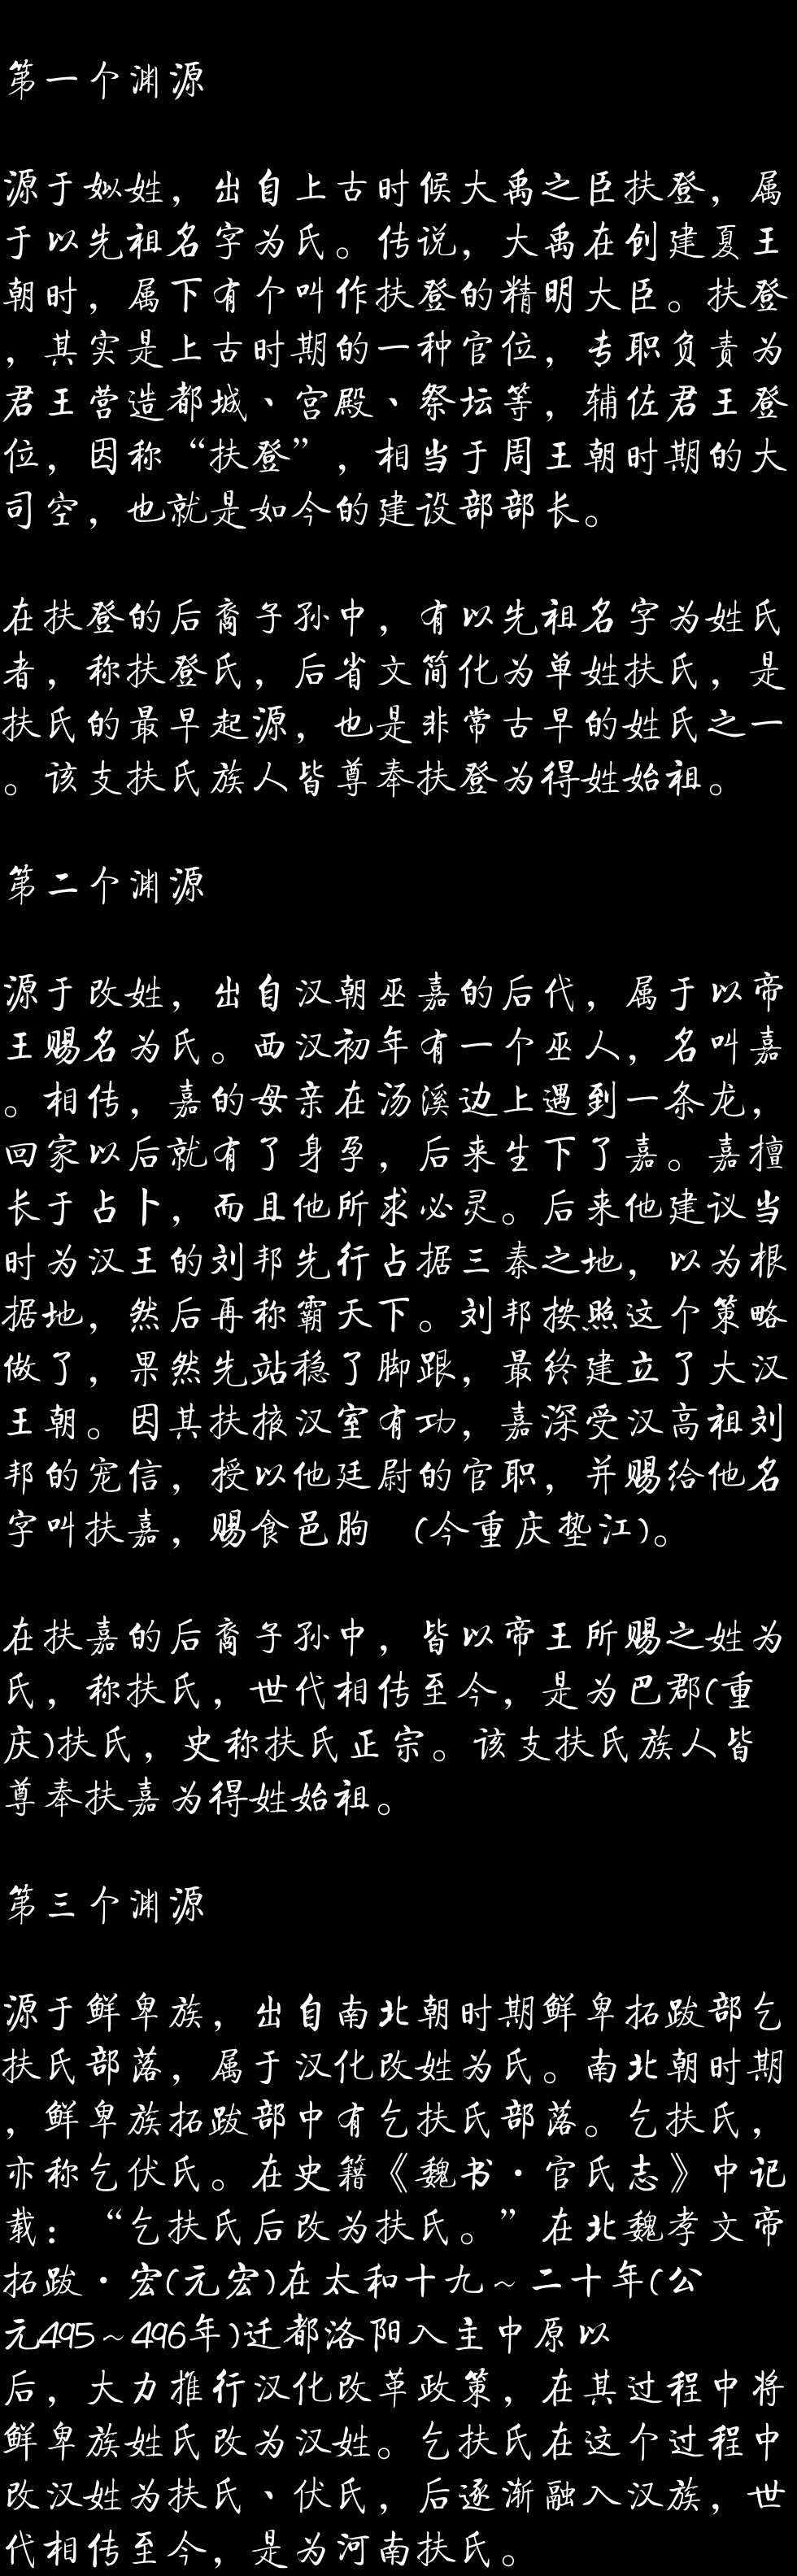 第一个渊源
源于姒姓，出自上古时候大禹之臣扶登，属
于以先祖名字为氏。传说，大禹在创建夏王
朝时，属下有个叫作扶登的精明大臣。扶登
，其实是上古时期的一种官位，专职负责为
君王营造都城、宫殿、祭坛等，辅佐君王登
位，因称“扶登”，相当于周王朝时期的大
司空，也就是如今的建设部部长。
在扶登的后裔子孙中，有以先祖名字为姓氏
者，称扶登氏，后省文简化为单姓扶氏，是
扶氏的最早起源，也是非常古早的姓氏之一
。该支扶氏族人皆尊奉扶登为得姓始祖。
第二个渊源
源于改姓，出自汉朝巫嘉的后代，属于以帝
王赐名为氏。西汉初年有一个巫人，名叫嘉
。相传，嘉的母亲在汤溪边上遇到一条龙，
回家以后就有了身孕，后来生下了嘉。嘉擅
长于占卜，而且他所求必灵。后来他建议当
时为汉王的刘邦先行占据三秦之地，以为根
据地，然后再称霸天下。刘邦按照这个策略
做了，果然先站稳了脚跟，最终建立了大汉
王朝。因其扶掖汉室有功，嘉深受汉高祖刘
邦的宠信，授以他廷尉的官职，并赐给他名
字叫扶嘉，赐食邑朐 (今重庆垫江)。
在扶嘉的后裔子孙中，皆以帝王所赐之姓为
氏，称扶氏，世代相传至今，是为巴郡(重
庆)扶氏，史称扶氏正宗。该支扶氏族人皆
尊奉扶嘉为得姓始祖。
第三个渊源
源于鲜卑族，出自南北朝时期鲜卑拓跋部乞
扶氏部落，属于汉化改姓为氏。南北朝时期
，鲜卑族拓跋部中有乞扶氏部落。乞扶氏，
亦称乞伏氏。在史籍《魏书·官氏志》中记
载：“乞扶氏后改为扶氏。”在北魏孝文帝
拓跋·宏(元宏)在太和十九～二十年(公
元495～496年)迁都洛阳入主中原以
后，大力推行汉化改革政策，在其过程中将
鲜卑族姓氏改为汉姓。乞扶氏在这个过程中
改汉姓为扶氏、伏氏，后逐渐融入汉族，世
代相传至今，是为河南扶氏。